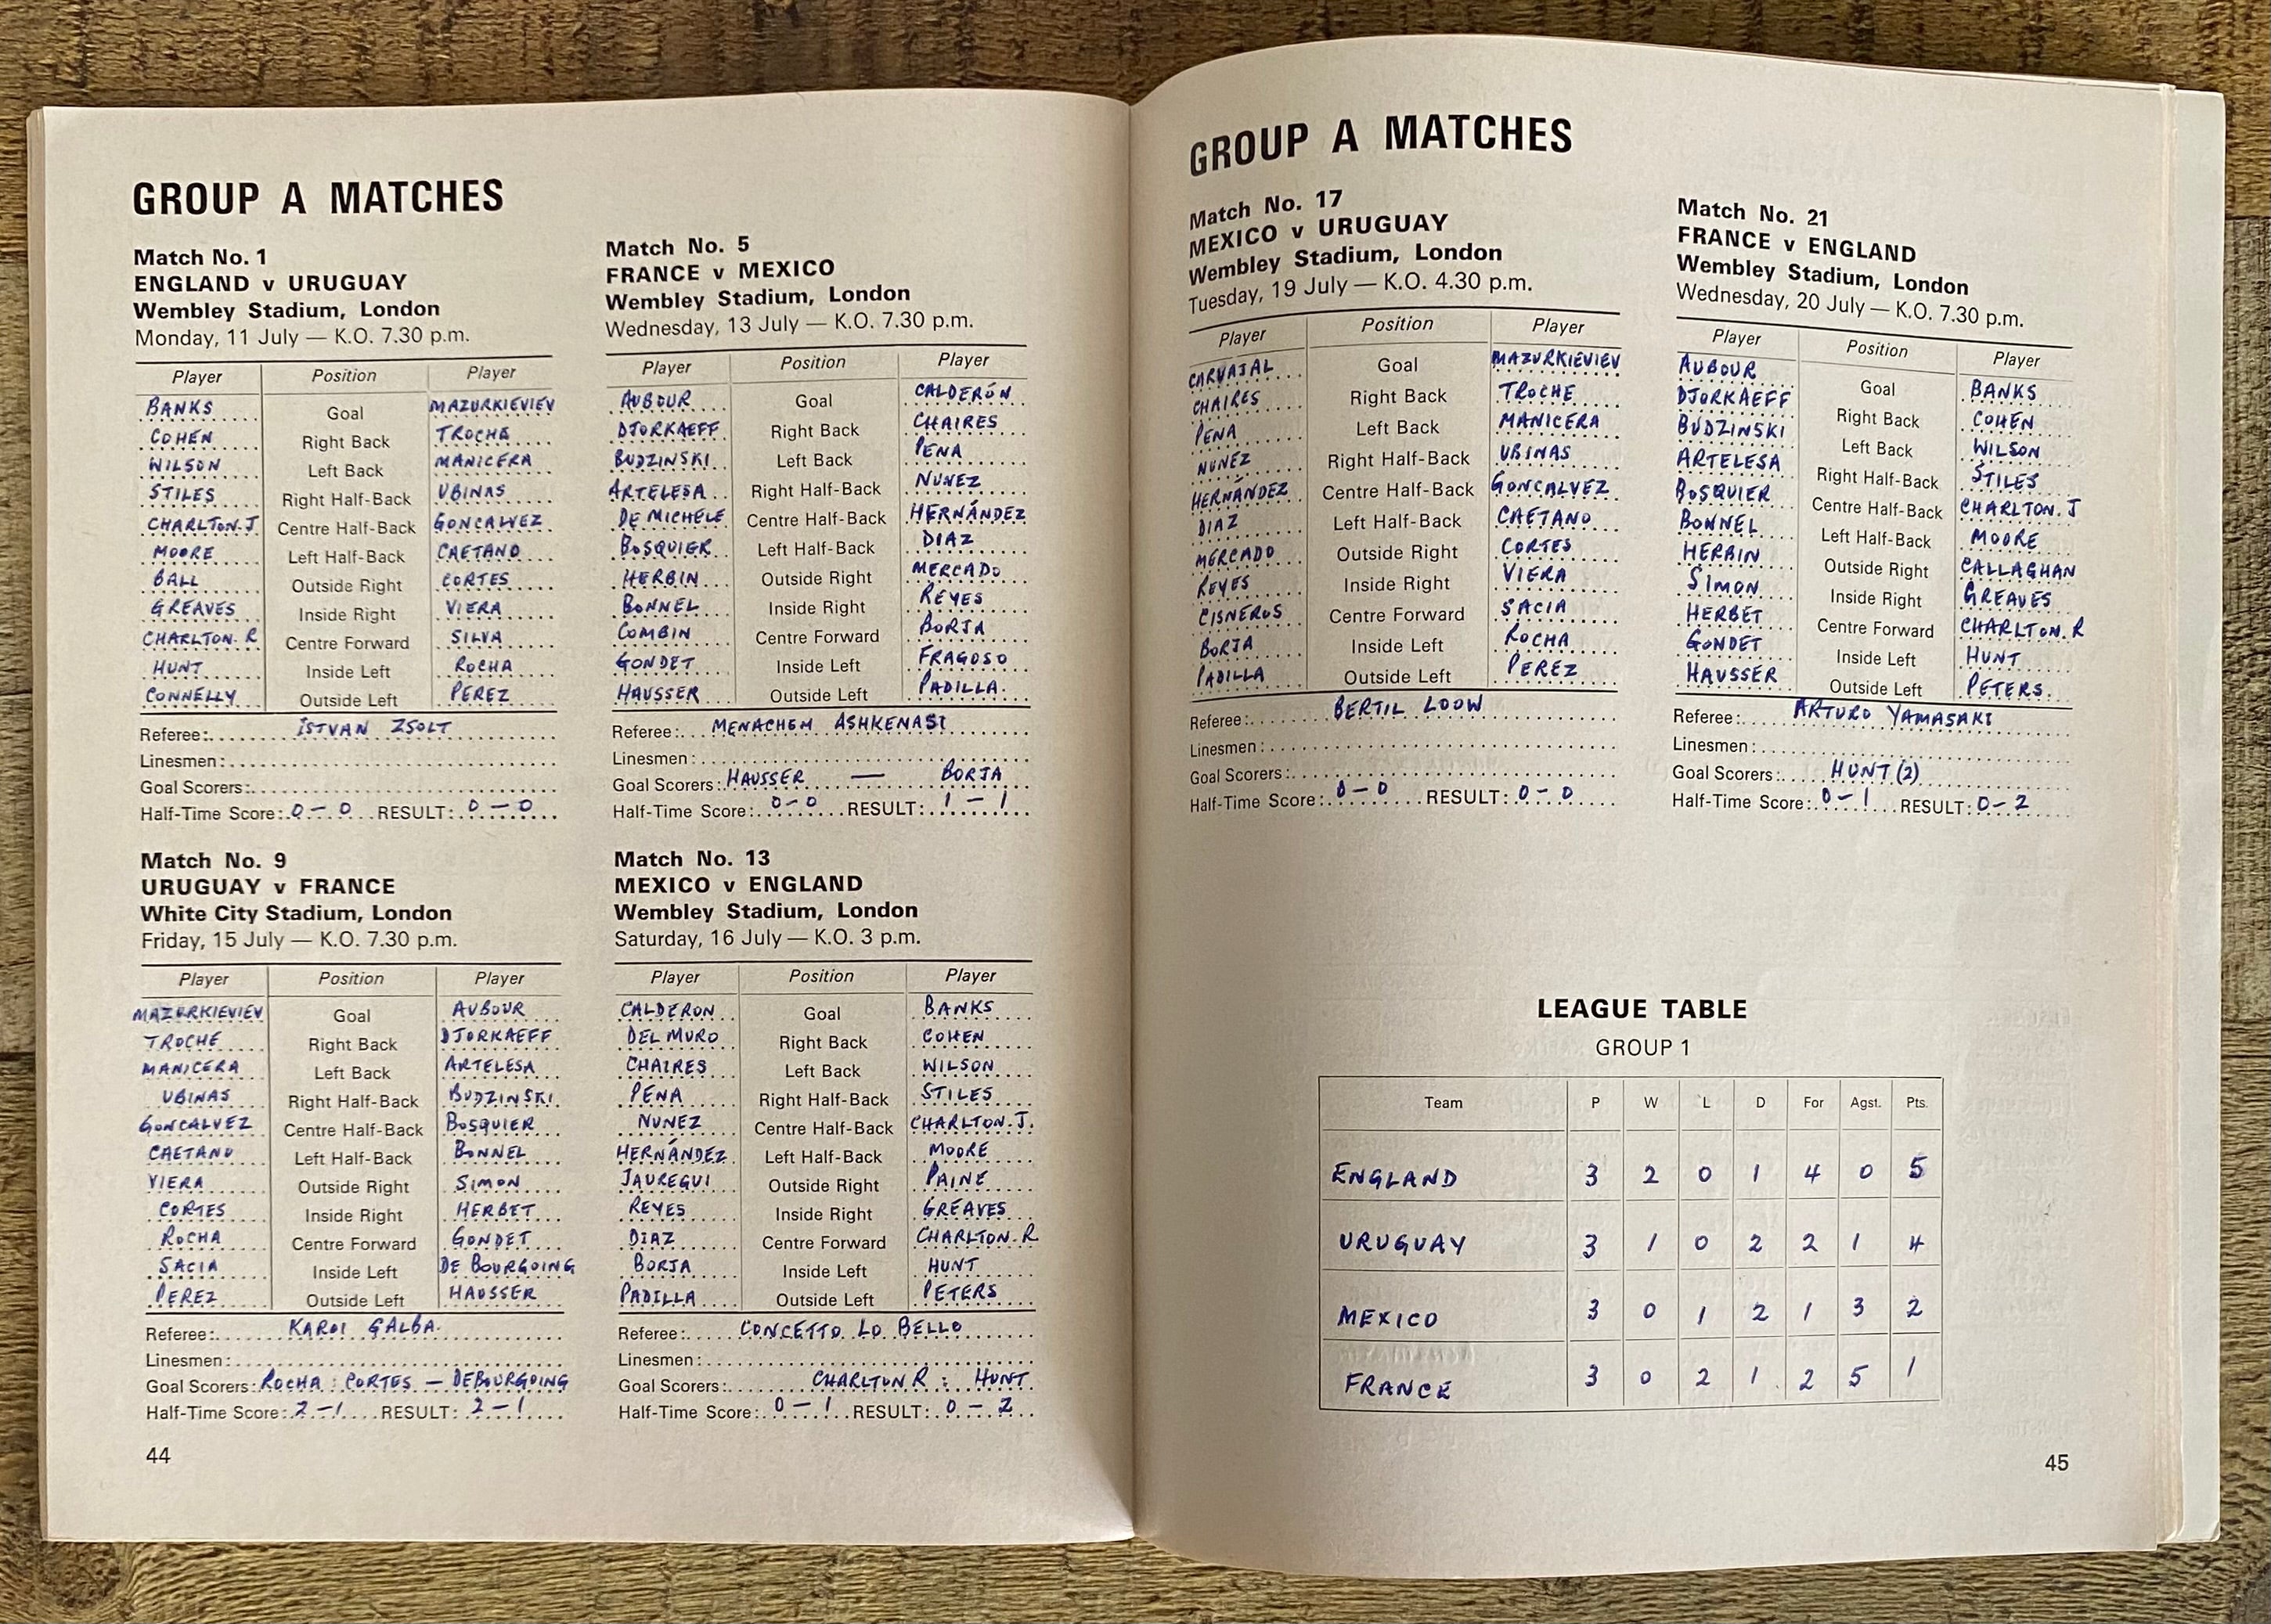 GROUP A MATCHES
Match No. 1
ENGLAND v URUGUAY
Wembley Stadium, London
Monday, 11 July — K.O. 7.30 p.m.
Player Position Player
BANKS Goal MAZURKIEVIEV
COHEN Right Back TROCHE
WILSON Left Back MANICERA
STILES Right Half-Back UBINAS
CHARLTON.J Centre Half-Back GONCALVEZ
MOORE Left Half-Back CAETANO
BALL Outside Right CORTES
GREAVES Inside Right VIERA
CHARLTON.R Centre Forward SILVA
HUNT Inside Left ROCHA
CONNELLY Outside Left PEREZ
Referee: ISTVAN ZSOLT
Linesmen:
Goal Scorers:
Half-Time Score: 0-0 RESULT: 0-0
Match No. 5
FRANCE v MEXICO
Wembley Stadium, London
Wednesday, 13 July — K.O. 7.30 p.m.
Player Position Player
AUBOUR Goal CALDERÓN
DJORKAEFF Right Back CHAIRES
BUDZINSKI Left Back PENA
ARTELESA Right Half-Back NUNEZ
DE MICHELE Centre Half-Back HERNÁNDEZ
BOSQUIER Left Half-Back DIAZ
HERBIN Outside Right MERCADO
BONNEL Inside Right REYES
COMBIN Centre Forward BORJA
GONDET Inside Left FRAGOSO
HAUSSER Outside Left PADILLA
Referee: MENACHEM ASHKENASI
Linesmen:
Goal Scorers: HAUSSER — BORJA
Half-Time Score: 0-0 RESULT: 1-1
Match No. 9
URUGUAY v FRANCE
White City Stadium, London
Friday, 15 July — K.O. 7.30 p.m.
Player Position Player
MAZURKIEVIEV Goal AUBOUR
TROCHE Right Back DJORKAEFF
MANICERA Left Back ARTELESA
UBINAS Right Half-Back BUDZINSKI
GONCALVEZ Centre Half-Back BOSQUIER
CAETANO Left Half-Back BONNEL
VIERA Outside Right SIMON
CORTES Inside Right HERBET
ROCHA Centre Forward GONDET
SACIA Inside Left DE BOURGOING
PEREZ Outside Left HAUSSER
Referee: KAROI GALBA.
Linesmen:
Goal Scorers: ROCHA : CORTES — DEBOURGOING
Half-Time Score: 2-1 RESULT: 2-1
Match No. 13
MEXICO v ENGLAND
Wembley Stadium, London
Saturday, 16 July — K.O. 3 p.m.
Player Position Player
CALDERON Goal BANKS
DEL MURO Right Back COHEN
CHAIRES Left Back WILSON
PENA Right Half-Back STILES
NUNEZ Centre Half-Back CHARLTON.J.
HERNÁNDEZ Left Half-Back MOORE
JAUREGUI Outside Right PAINE
REYES Inside Right GREAVES
DIAZ Centre Forward CHARLTON.R
BORJA Inside Left HUNT
PADILLA Outside Left PETERS
Referee: CONCETTO LO BELLO
Linesmen:
Goal Scorers: CHARLTON R : HUNT
Half-Time Score: 0-1 RESULT: 0-2
44
GROUP A MATCHES
Match No. 17
MEXICO v URUGUAY
Wembley Stadium, London
Tuesday, 19 July — K.O. 4.30 p.m.
Player Position Player
CARVAJAL Goal MAZURKIEVIEV
CHAIRES Right Back TROCHE
PENA Left Back MANICERA
NUNEZ Right Half-Back UBINAS
HERNÁNDEZ Centre Half-Back GONCALVEZ
DIAZ Left Half-Back CAETANO
MERCADO Outside Right CORTES
REYES Inside Right VIERA
CISNEROS Centre Forward SACIA
BORJA Inside Left ROCHA
PADILLA Outside Left PEREZ
Referee: BERTIL LOOW
Linesmen:
Goal Scorers:
Half-Time Score: 0-0 RESULT: 0-0
Match No. 21
FRANCE v ENGLAND
Wembley Stadium, London
Wednesday, 20 July — K.O. 7.30 p.m.
Player Position Player
AUBOUR Goal BANKS
DJORKAEFF Right Back COHEN
BUDZINSKI Left Back WILSON
ARTELESA Right Half-Back STILES
BOSQUIER Centre Half-Back CHARLTON.J
BONNEL Left Half-Back MOORE
HERBIN Outside Right CALLAGHAN
SIMON Inside Right GREAVES
HERBET Centre Forward CHARLTON.R
GONDET Inside Left HUNT
HAUSSER Outside Left PETERS
Referee: ARTURO YAMASAKI
Linesmen:
Goal Scorers: HUNT (2)
Half-Time Score: 0-1 RESULT: 0-2
LEAGUE TABLE
GROUP 1
Team P W L D For Agst. Pts.
ENGLAND 3 2 0 1 4 0 5
URUGUAY 3 1 0 2 2 1 4
MEXICO 3 0 1 2 1 3 2
FRANCE 3 0 2 1 2 5 1
45